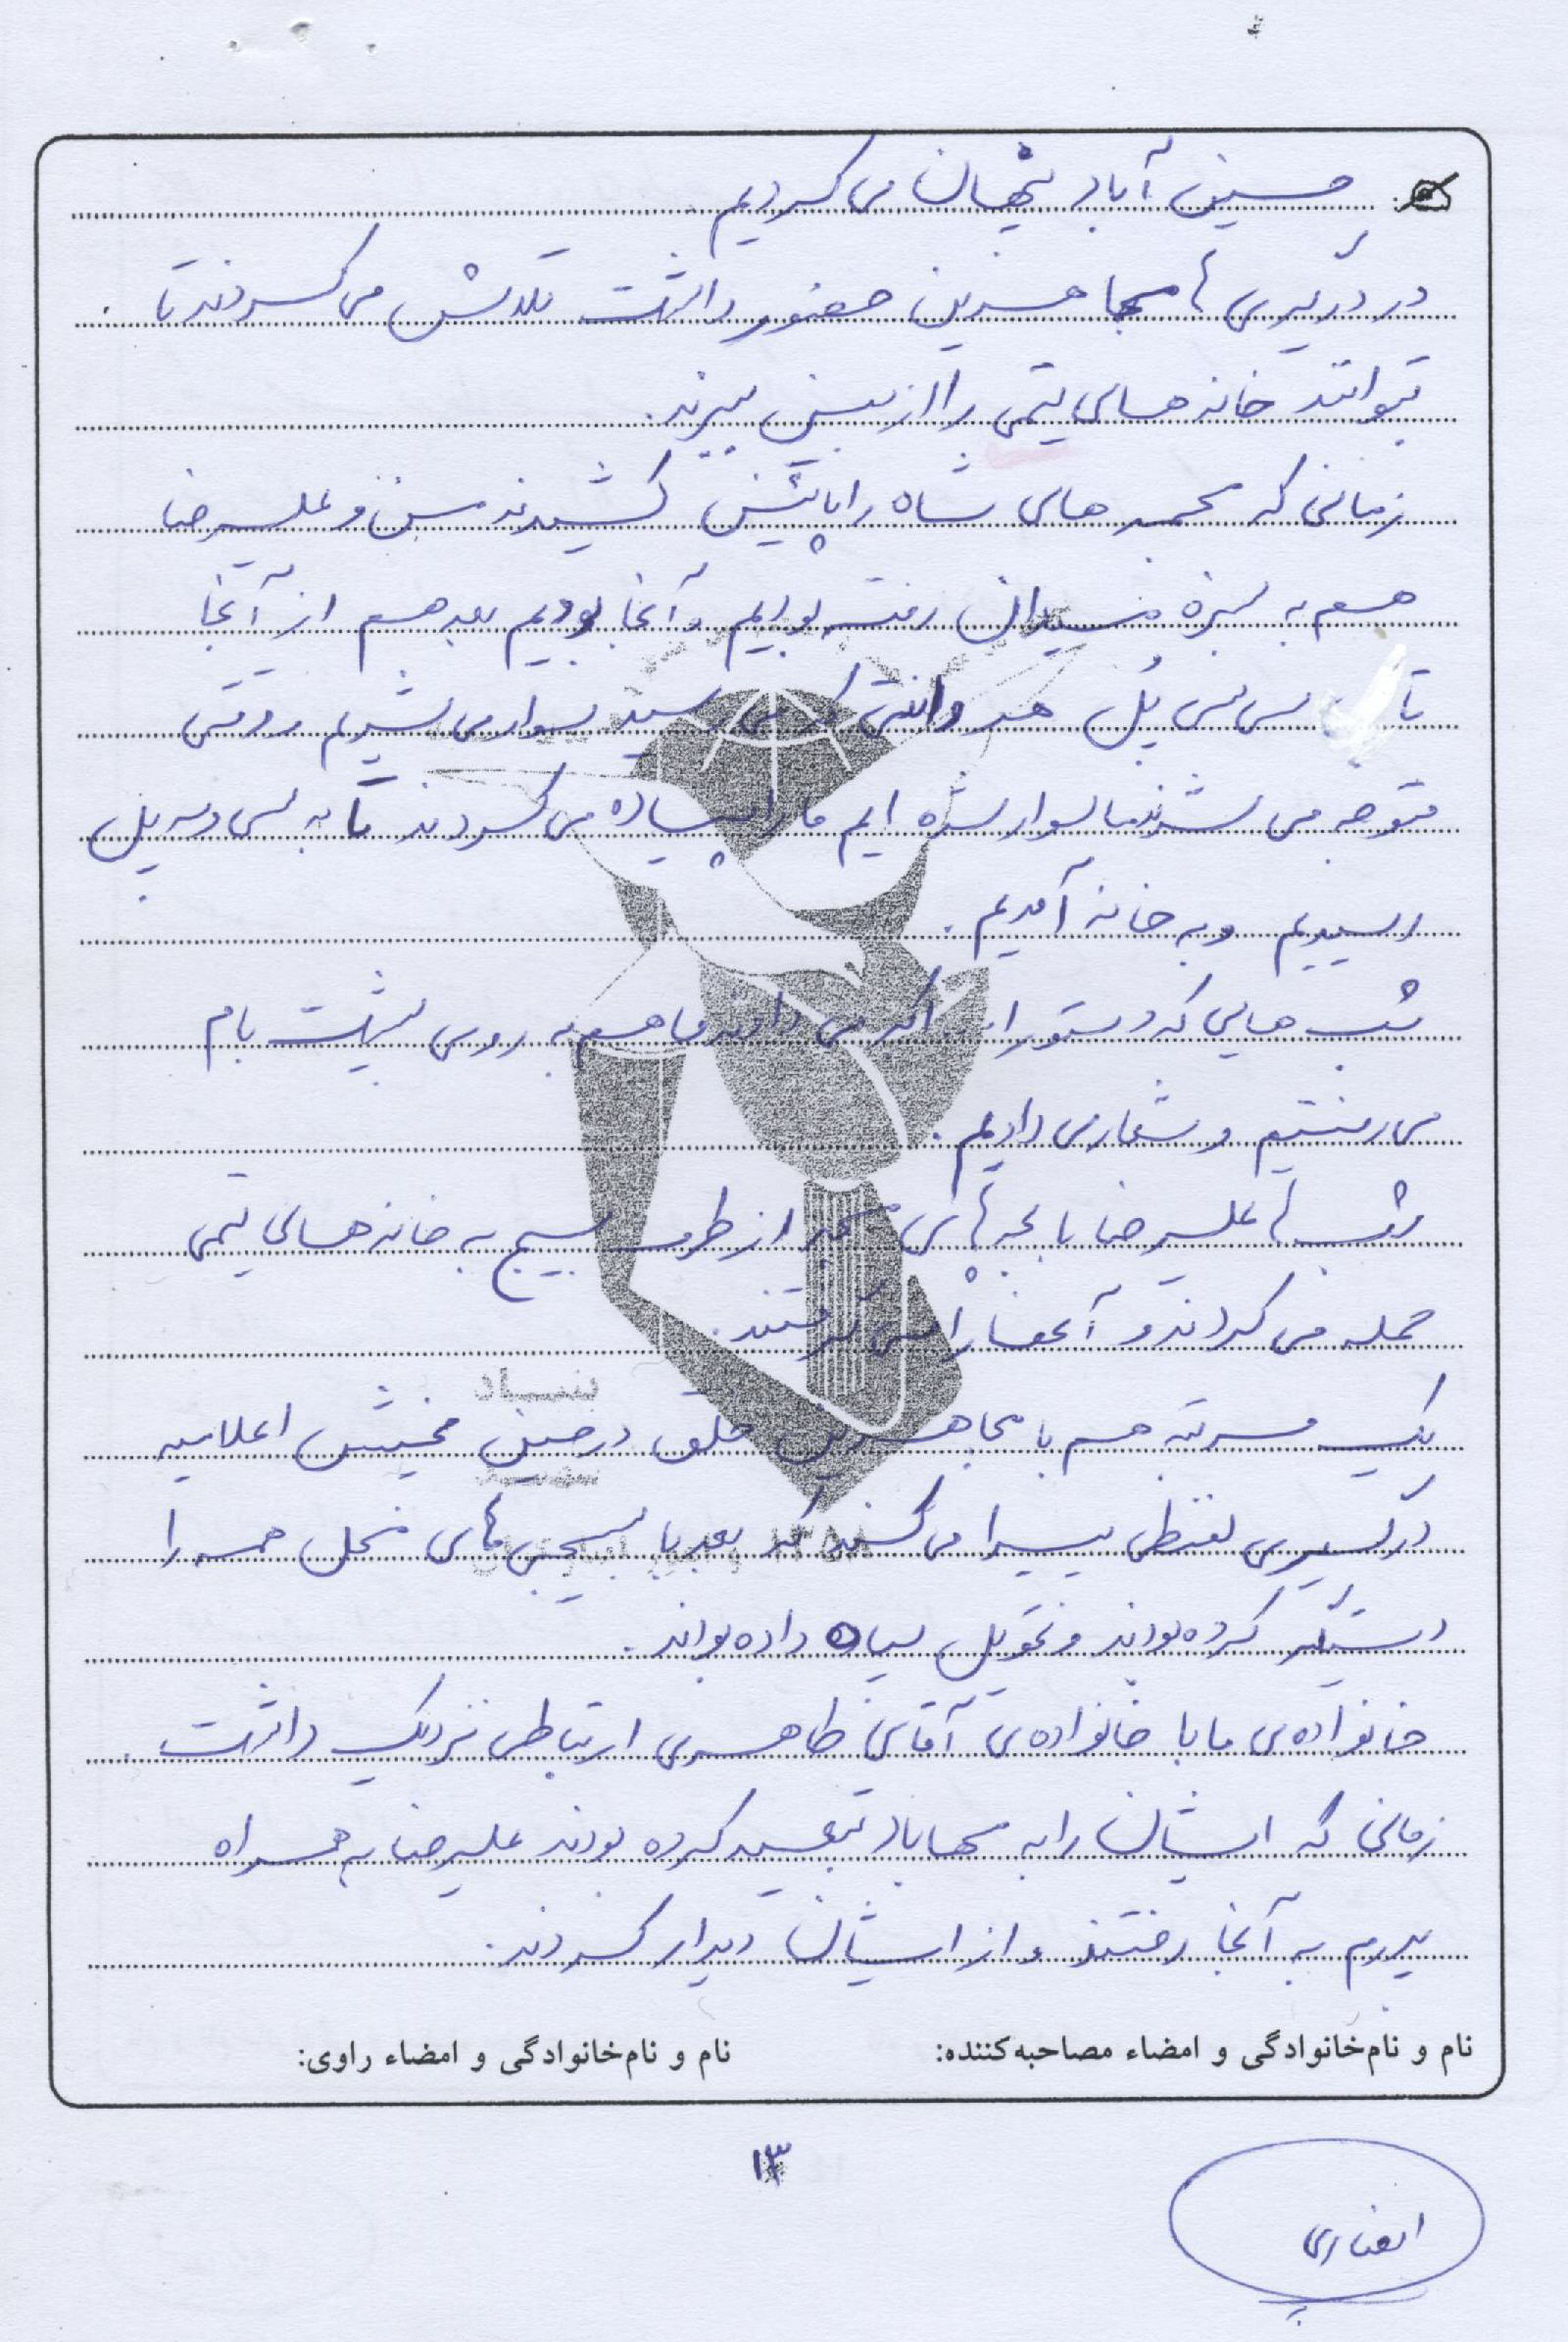 حسین آباد پنهان می کردیم
در درگیری ها مجاهدین حضور داشت تلاش می کردند تا
بتوانند خانه های تیمی را از بین ببرند.
زمانی که مجسمه های شاه را پائین کشیدند من و علیرضا
هم به سبزه میدان رفته بودیم و آنجا بودیم بعد هم از آنجا
تا سی سی پل هر وانتی که می رسید سوار می شدیم و وقتی
متوجه می شدند ما سوار شده ایم ما را پیاده می کردند تا به سی و سه پل
رسیدیم و به خانه آمدیم.
شب هایی که دستور ا... اکبر می دادند ما هم به روی پشت بام
می رفتیم و شعار می دادیم.
شب ها علیرضا با بچه های مسجد از طرف بسیج به خانه های تیمی
حمله می کردند و آنها را می گرفتند.
یک مرتبه هم با مجاهدین خلق در حین پخش اعلامیه
درگیری لفظی پیدا می کنند که بعد با بسیجی های محل همه را
دستگیر کرده بودند و تحویل سپاه داده بودند.
خانواده ی ما با خانواده ی آقای طاهری ارتباطی نزدیک داشت.
زمانی که ایشان را به مهاباد تبعید کرده بودند علیرضا به همراه
پدرم به آنجا رفتند و از ایشان دیدار کردند.
نام و نام‌خانوادگی و امضاء مصاحبه‌کننده:
نام و نام‌خانوادگی و امضاء راوی:
۱۳
انصاری
بنیاد
شهید